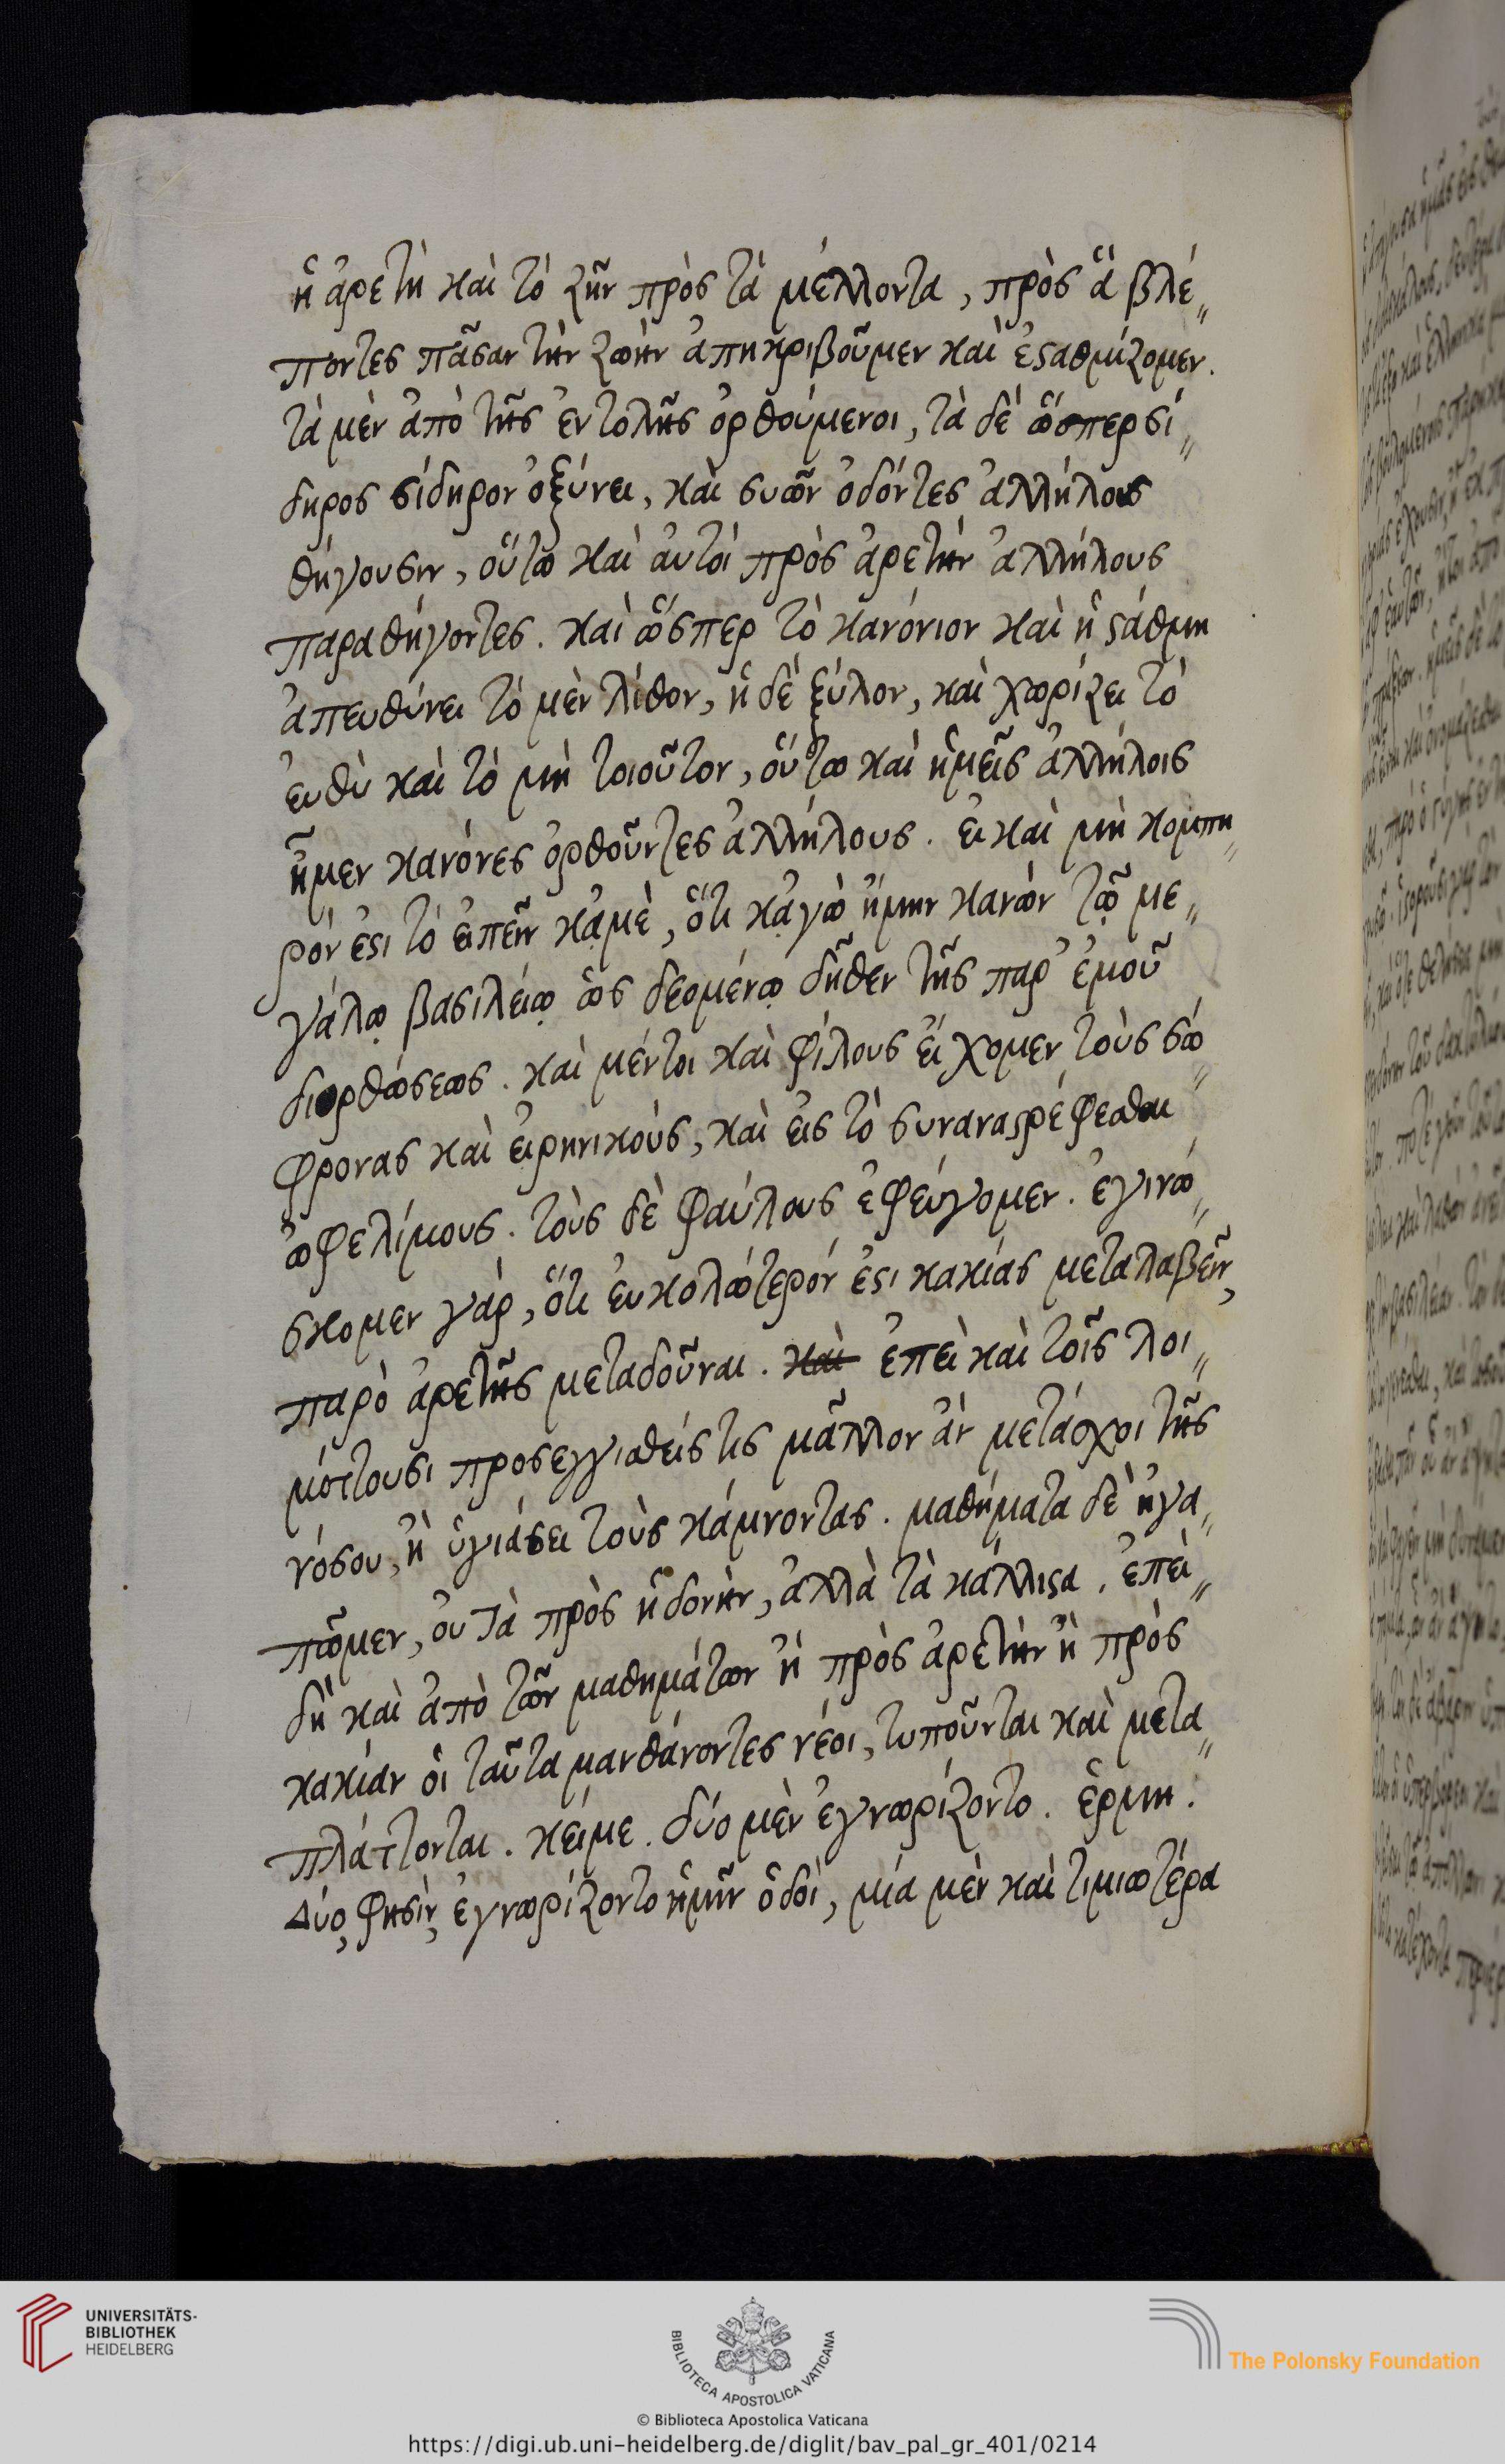 ἡ ἀρετὴ καὶ τὸ ζῆν πρὸς τὰ μέλλοντα, πρὸς ἃ βλέ„
ποντες πᾶσαν τὴν ζωὴν ἀπηκριβοῦμεν καὶ ἐϛαθμίζομεν.
τὰ μὲν ἀπὸ τῆς ἐντολῆς ὀρθούμενοι, τὰ δὲ ὥσπερ σί„
δηρος σίδηρον ὀξύνει, καὶ συῶν ὀδόντες ἀλλήλους
θήγουσιν, οὕτω καὶ αὐτοὶ πρὸς ἀρετὴν ἀλλήλους
παραθήγοντες. καὶ ὥσπερ τὸ κανόνιον καὶ ἡ ϛάθμη
ἀπευθύνει τὸ μὲν λίθον, ἡ δὲ ξύλον, καὶ χωρίζει τὸ
εὐθὺ καὶ τὸ μὴ τοιοῦτον, οὕτω καὶ ἡμεῖς ἀλλήλοις
ἦμεν κανόνες ὀρθοῦντες ἀλλήλους. εἰ καὶ μὴ κομπη„
ρόν ἐϛι τὸ εἰπεῖν κᾀμὲ, ὅτι κᾀγὼ ἤμην κανὼν τῷ με„
γάλῳ βασιλείῳ ὡς δεομένῳ δῆθεν τῆς παρ' ἐμοῦ
διορθώσεως. καὶ μέντοι καὶ φίλους εἴχομεν τοὺς σώ„
φρονας καὶ εἰρηνικοὺς, καὶ εἰς τὸ συναναϛρέφεσθαι
ὠφελίμους. τοὺς δὲ φαύλους ἐφεύγομεν. ἐγινώ„
σκομεν γὰρ, ὅτι εὐκολώτερόν ἐϛι κακίας μεταλαβεῖν,
παρὸ ἀρετῆς μεταδοῦναι. καὶ ἐπεὶ καὶ τοῖς λοι„
μώττουσι προσεγγισθείς τις μᾶλλον ἂν μετάσχοι τῆς
νόσου, ἢ ὑγιάσει τοὺς κάμνοντας. μαθήματα δὲ ἠγα„
πῶμεν, οὐ τὰ πρὸς ἡδονὴν, ἀλλὰ τὰ κάλλιϛα. ἐπει„
δὴ καὶ ἀπὸ τῶν μαθημάτων ἢ πρὸς ἀρετὴν ἢ πρὸς
κακίαν οἱ ταῦτα μανθάνοντες νέοι, τυποῦνται καὶ μετα„
πλάττονται. κείμε. δύο μὲν ἐγνωρίζοντο. ἑρμη.
Δύο, φησὶν, ἐγνωρίζοντο ἡμῖν ὁδοὶ, μία μὲν καὶ τιμιωτέρα
UNIVERSITÄTS-
BIBLIOTHEK
HEIDELBERG
BIBLIOTECA APOSTOLICA VATICANA
The Polonsky Foundation
© Biblioteca Apostolica Vaticana
https://digi.ub.uni-heidelberg.de/diglit/bav_pal_gr_401/0214